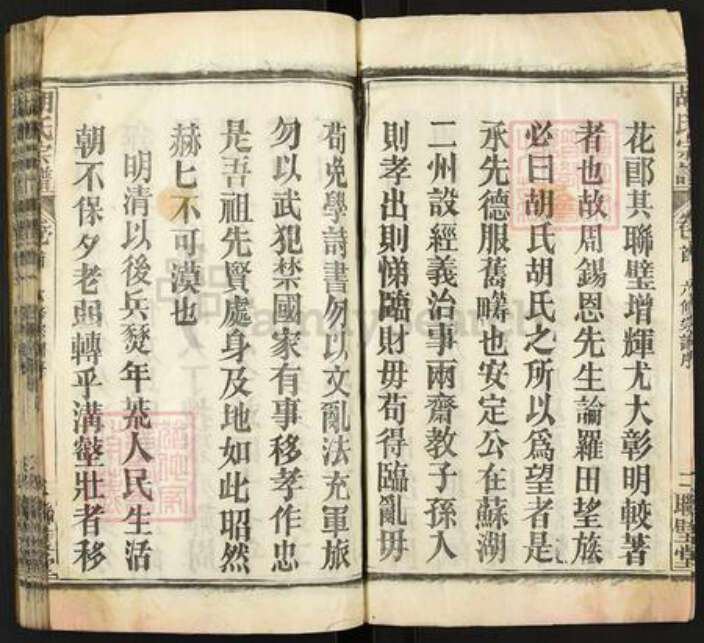 胡氏宗譜 卷之首 六修宗譜序 二 聯璧堂
花郎其聯璧增輝尤大彰明較著
者也故周錫恩先生論羅田望族
必曰胡氏胡氏之所以為望者是
承先德服舊疇也安定公在蘇湖
二州設經義治事兩齋教子孫入
則孝出則悌臨財毋苟得臨亂毋
苟免學詩書勿以文亂法充軍旅
勿以武犯禁國家有事移孝作忠
是吾祖先賢處身及地如此昭然
赫匕不可漠也
明清以後兵燹年荒人民生活
朝不保夕老弱轉乎溝壑壯者移
胡氏宗譜